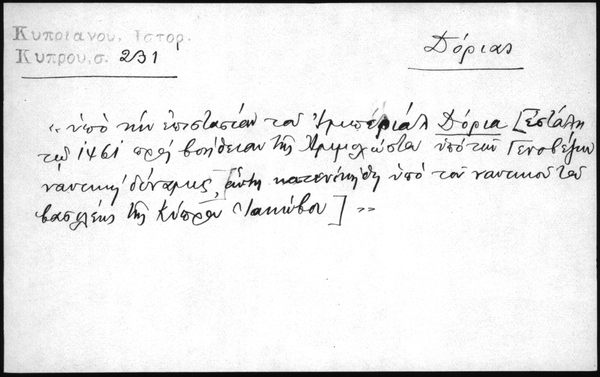 Κυπριανου, Ιστορ.
Κυπρου, σ. 231
Δόριας
« ὑπὸ τὴν ἐπιστασίαν τοῦ Ἰμπέριαλ Δόρια [ἐστάλη
τῷ 1461 πρὸς βοήθειαν τῆς Ἀμμοχώστου ὑπὸ τῶν Γενοβέζων
ναυτικὴ δύναμις, αὕτη κατενικήθη ὑπὸ τοῦ ναυτικοῦ τοῦ
βασιλέως τῆς Κύπρου Ἰακώβου] »